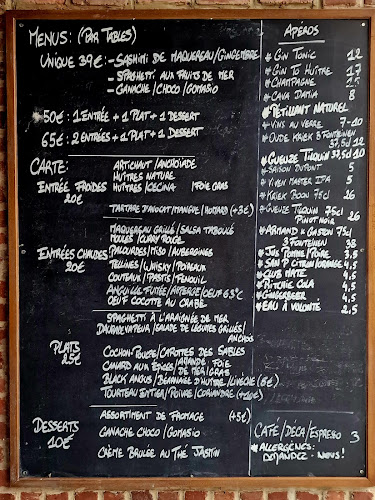 MENUS: (PAR TABLES)
UNIQUE 39€: - SASHIMI DE MAQUEREAU/GINGEMBRE
- SPAGHETTI AUX FRUITS DE MER
- GANACHE/CHOCO/GOMASIO
50€: 1 ENTRÉE + 1 PLAT + 1 DESSERT
65€: 2 ENTRÉES + 1 PLAT + 1 DESSERT
CARTE:
ENTRÉE FROIDES
20€
ARTICHAUT/ANCHOÏADE
HUÎTRES NATURE
HUÎTRES/CECINA/FOIE GRAS
TARTARE D'AVOCAT/MANGUE/HOMARD (+3€)
ENTRÉES CHAUDES
20€
MAQUEREAU GRILLÉ/SALSA TABOULÉ
MOULES/CURRY ROUGE
PALOURDES/MISO/AUBERGINES
TELLINES/WHISKY/POIREAUX
COUTEAUX/PASTIS/FENOUIL
ANGUILLE FUMÉE/ASPERGE/OEUF 63°C
OEUF COCOTTE AU CRABE
PLATS
25€
SPAGHETTI À L'ARAIGNÉE DE MER
DAURADE/SALADE DE LÉGUMES GRILLÉS/
ANCHOIS
COCHON/CAROTTES DES SABLES
CANARD AUX ÉPICES/FOIE
DE MER/GRAS
BLACK ANGUS/BÉARNAISE D'HUÎTRE/LIVÈCHE (5€)
TOURTEAU ENTIER/POIVRE/CORIANDRE (+10€)
DESSERTS
10€
ASSORTIMENT DE FROMAGE (+5€)
GANACHE CHOCO/GOMASIO
CRÈME BRULÉE AU THÉ JASMIN
APÉROS
* GIN TONIC 12
* GIN TO HUÎTRE 17
* CHAMPAGNE 15
* CAVA DAMIA 8
* PÉTILLANT NATUREL
* VINS AU VERRE 7-10
* OUDE KRIEK 3 FONTEINEN
37,5cl 12
* GUEUZE TILQUIN 37,5cl 10
* SAISON DUPONT 5
* VIVEN MASTER IPA 5
* KRIEK BOON 75cl 26
* GUEUZE TILQUIN 75cl
PINOT NOIR 26
* ARMAND & GASTON 75cl
3 FONTEINEN 38
* JUS POMME/POIRE 3.5
* SAN P CITRON/ORANGE 4,5
* CLUB MATE 4,5
* RITCHIE COLA 4,5
* GINGERBEER 4,5
* EAU À VOLONTÉ 2,5
CAFÉ/DÉCA/ESPRESSO 3
* ALLERGÈNES:
DEMANDEZ-NOUS!